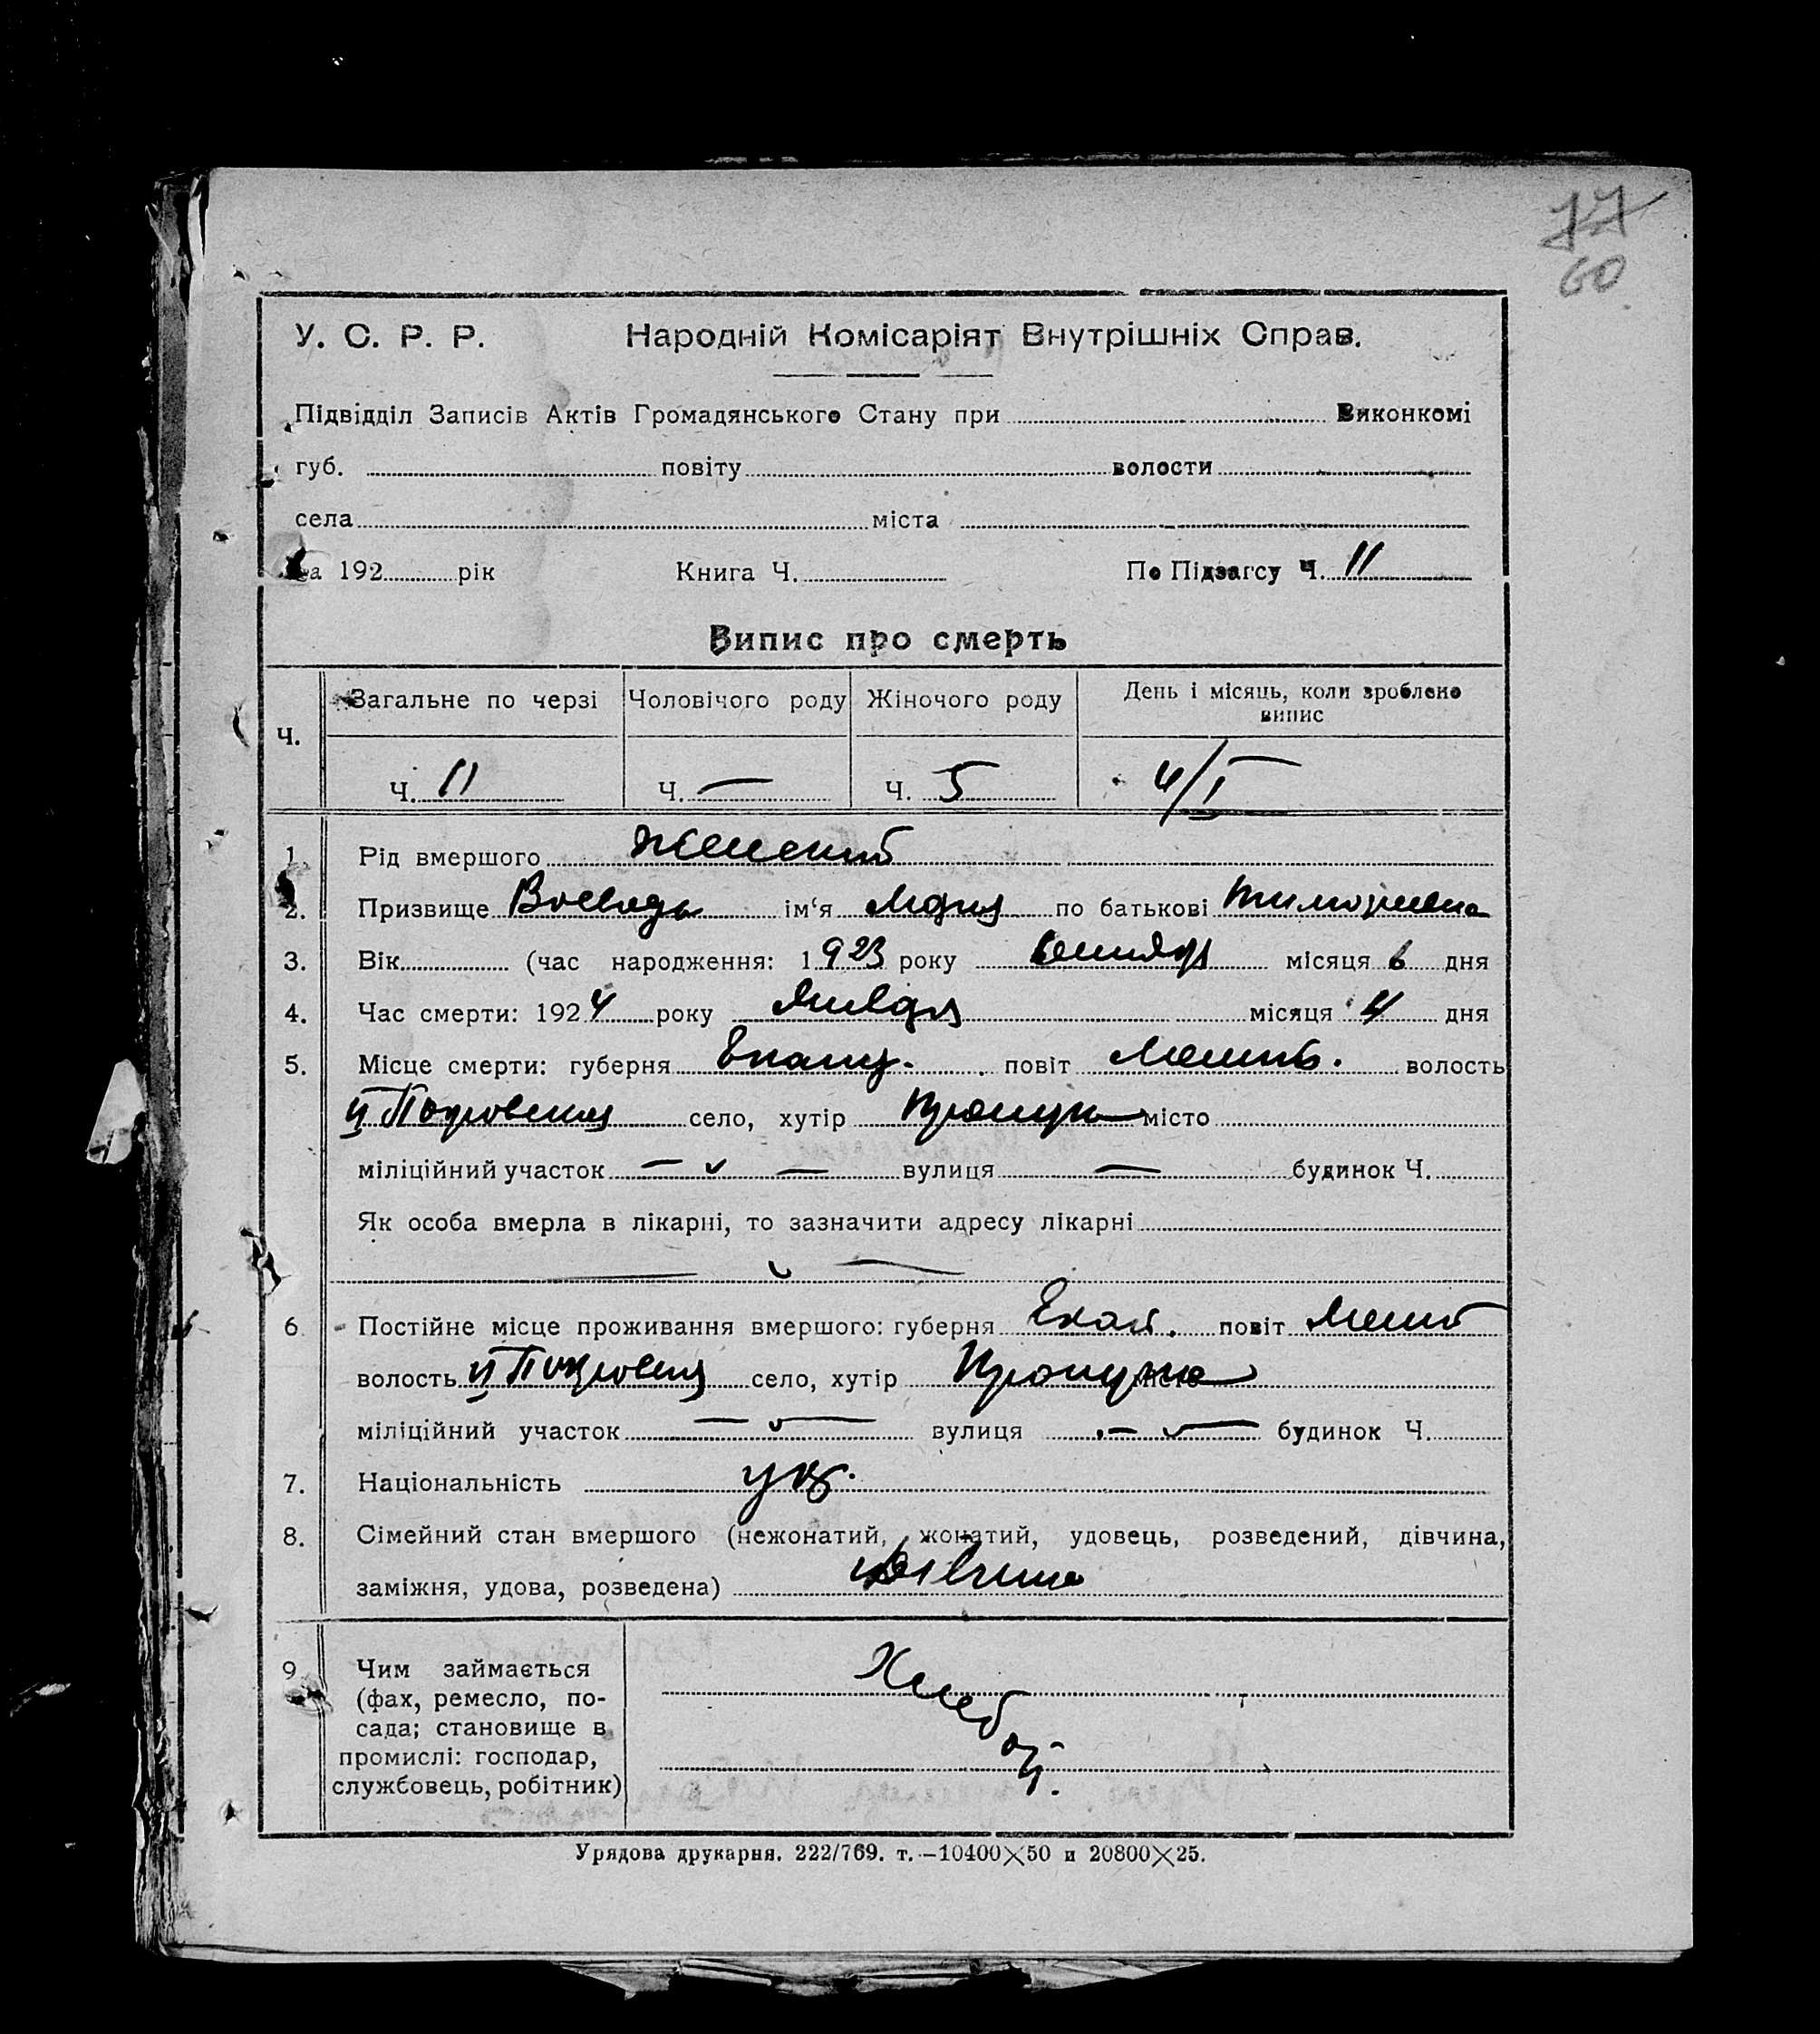 77
60
У. С. Р. Р. Народній Комісаріят Внутрішніх Справ.
Підвідділ Записів Актів Громадянського Стану при Виконкомі
губ. повіту волости
села міста
за 192 рік Книга Ч. По Підзагсу Ч. 11
Випис про смерть
Ч. Загальне по черзі Чоловічого роду Жіночого роду День і місяць, коли зроблено випис
Ч. 11 Ч. — Ч. 5 4/I
1. Рід вмершого Женский
2. Призвище ім‘я Мария по батькові
3. Вік (час народження: 1923 року місяця 6 дня
4. Час смерти: 1924 року Января місяця 4 дня
5. Місце смерти: губерня повіт волость
II Покровская село, хутір місто
міліційний участок — — вулиця — будинок Ч.
Як особа вмерла в лікарні, то зазначити адресу лікарні
6. Постійне місце проживання вмершого: губерня Екат. повіт
волость II Покровск село, хутір місто
міліційний участок — вулиця — будинок Ч.
7. Національність укр.
8. Сімейний стан вмершого (нежонатий, жонатий, удовець, розведений, дівчина,
заміжня, удова, розведена) дівчина
9. Чим займається
(фах, ремесло, по-
сада; становище в
промислі: господар,
службовець, робітник)
Хлебор.
Урядова друкарня. 222/769. т.—10400×50 и 20800×25.